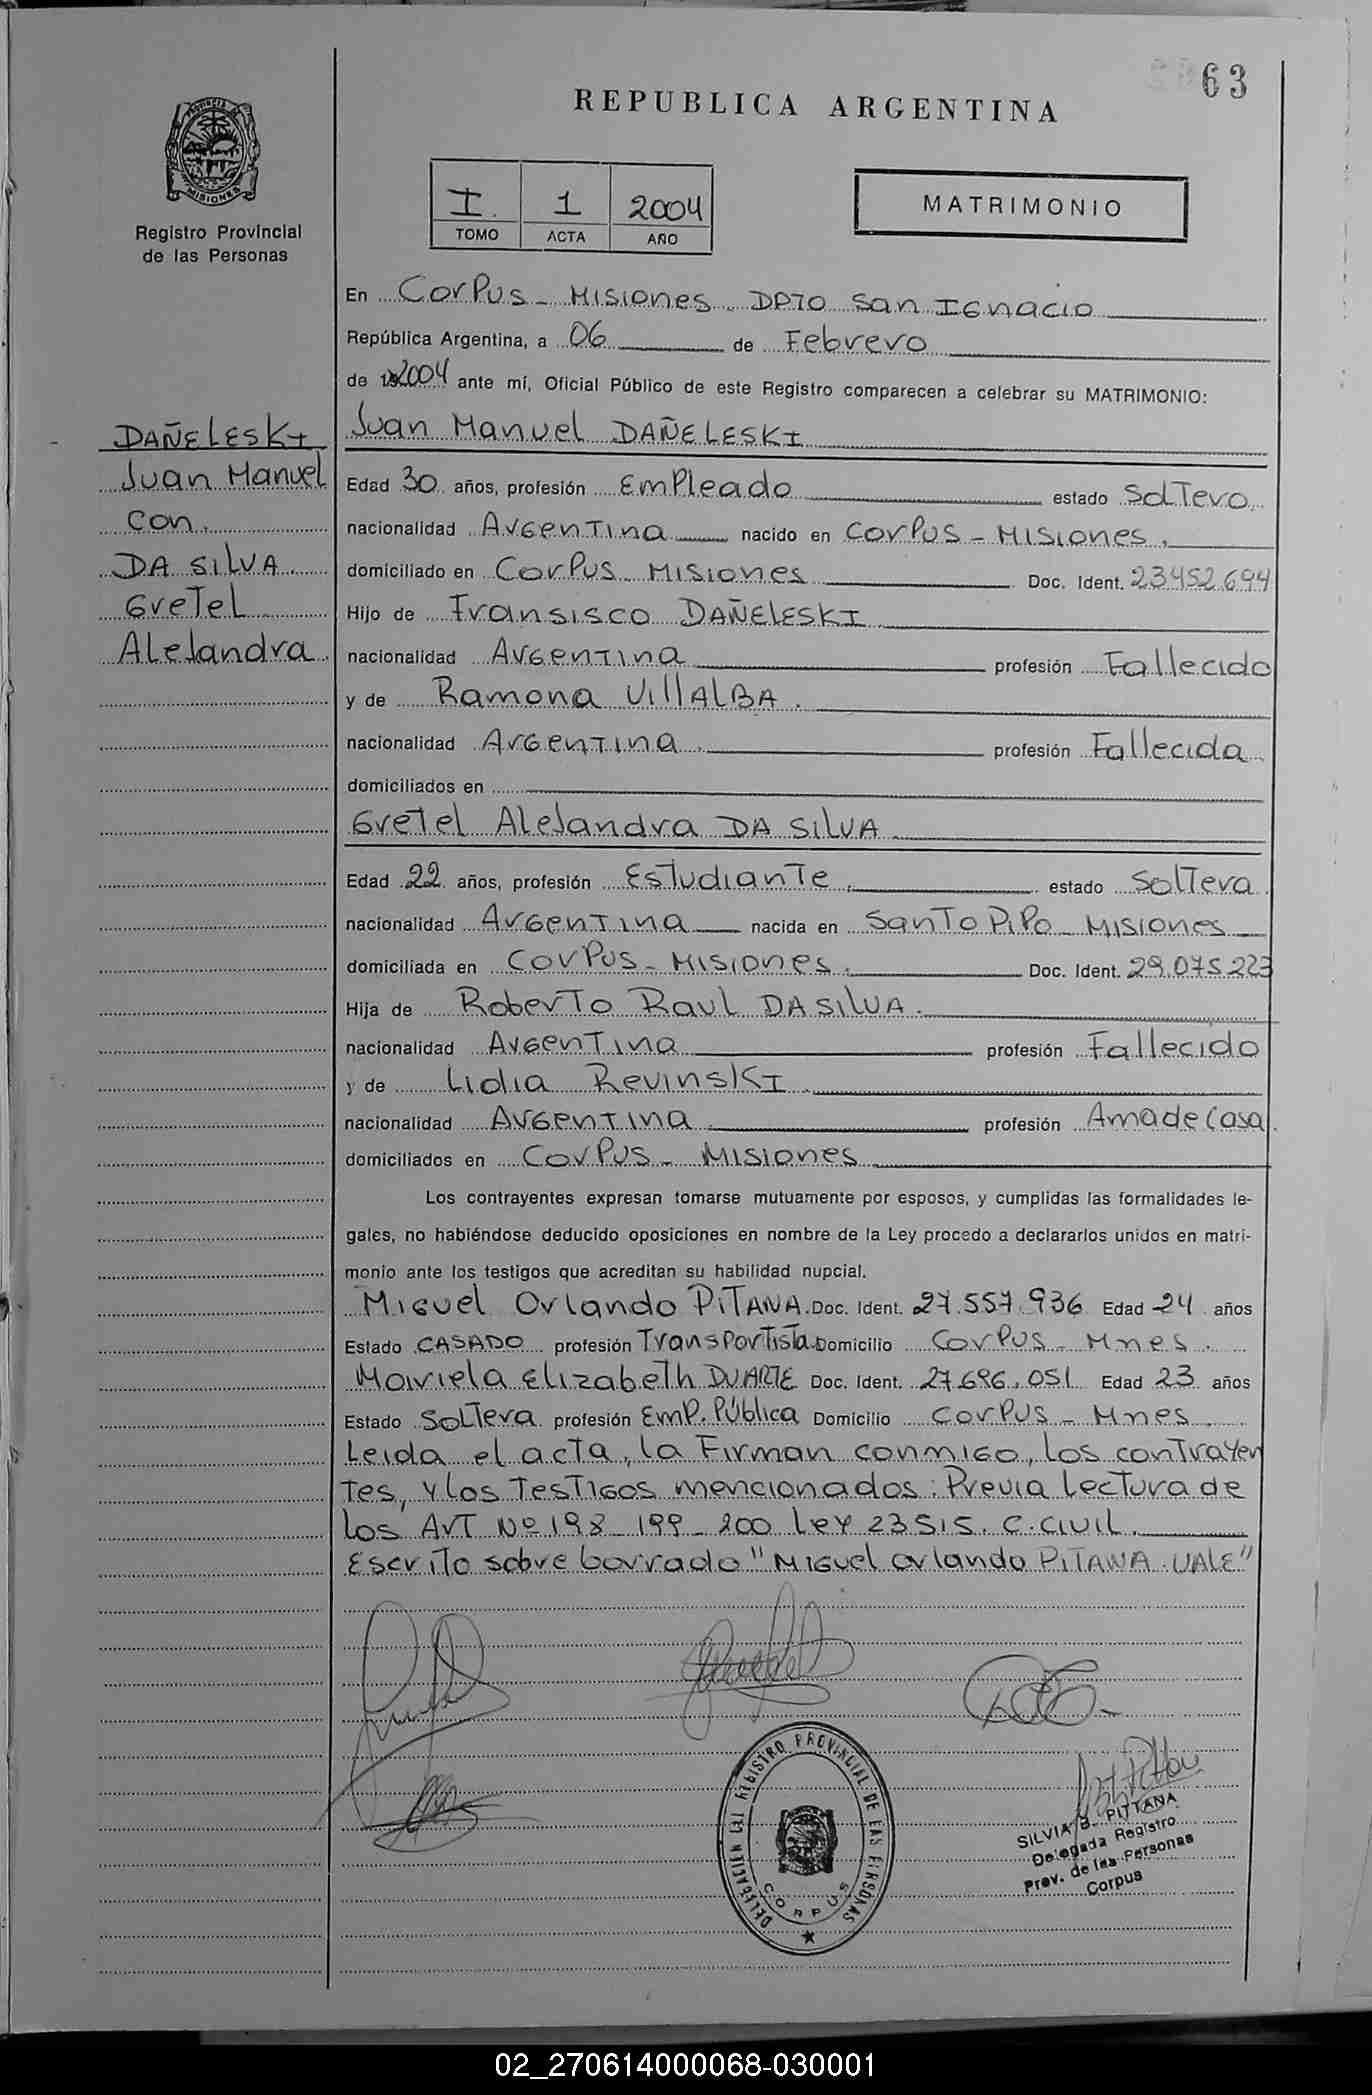 63
REPUBLICA ARGENTINA
PROVINCIA DE MISIONES
Registro Provincial
de las Personas
I. 1 2004
TOMO ACTA AÑO
MATRIMONIO
En Corpus - Misiones - DPTO San Ignacio
República Argentina, a 06 de Febrero
de 2004 ante mí, Oficial Público de este Registro comparecen a celebrar su MATRIMONIO:
DAÑELESKI
Juan Manuel
con.
DA SILVA.
Gretel
Alejandra.
Juan Manuel DAÑELESKI
Edad 30 años, profesión Empleado estado Soltero
nacionalidad Argentina nacido en Corpus - Misiones.
domiciliado en Corpus - Misiones Doc. Ident. 23452694
Hijo de Fransisco DAÑELESKI
nacionalidad Argentina profesión Fallecido
y de Ramona VillALBA.
nacionalidad Argentina. profesión Fallecida
domiciliados en
Gretel Alejandra DA SILVA
Edad 22 años, profesión Estudiante. estado Soltera
nacionalidad Argentina nacida en Santo PiPo - Misiones
domiciliada en Corpus - Misiones. Doc. Ident. 29.075.223
Hija de Roberto Raul DA SILVA.
nacionalidad Argentina profesión Fallecido
y de Lidia RevinskI
nacionalidad Argentina. profesión Ama de Casa
domiciliados en Corpus - Misiones
Los contrayentes expresan tomarse mutuamente por esposos, y cumplidas las formalidades le-
gales, no habiéndose deducido oposiciones en nombre de la Ley procedo a declararlos unidos en matri-
monio ante los testigos que acreditan su habilidad nupcial.
Miguel Orlando PiTANA. Doc. Ident. 27.557.936 Edad 24 años
Estado CASADO profesión Transportista Domicilio Corpus - Mnes.
Mariela Elizabeth DUARTE Doc. Ident. 27.696.051 Edad 23 años
Estado Soltera profesión Emp. Pública Domicilio Corpus - Mnes.
Leida el acta, la Firman conmigo, los contrayen
tes, y los Testigos mencionados: Previa Lectura de
los Art Nº 198 - 199 - 200 Ley 23515. C. Civil.
Escrito sobre borrado "Miguel Orlando PITANA. VALE"
DELEGACION DEL REGISTRO PROVINCIAL DE LAS PERSONAS
CORPUS
SILVIA B. PITTANA
Delegada Registro
Prov. de las Personas
Corpus
02_270614000068-030001